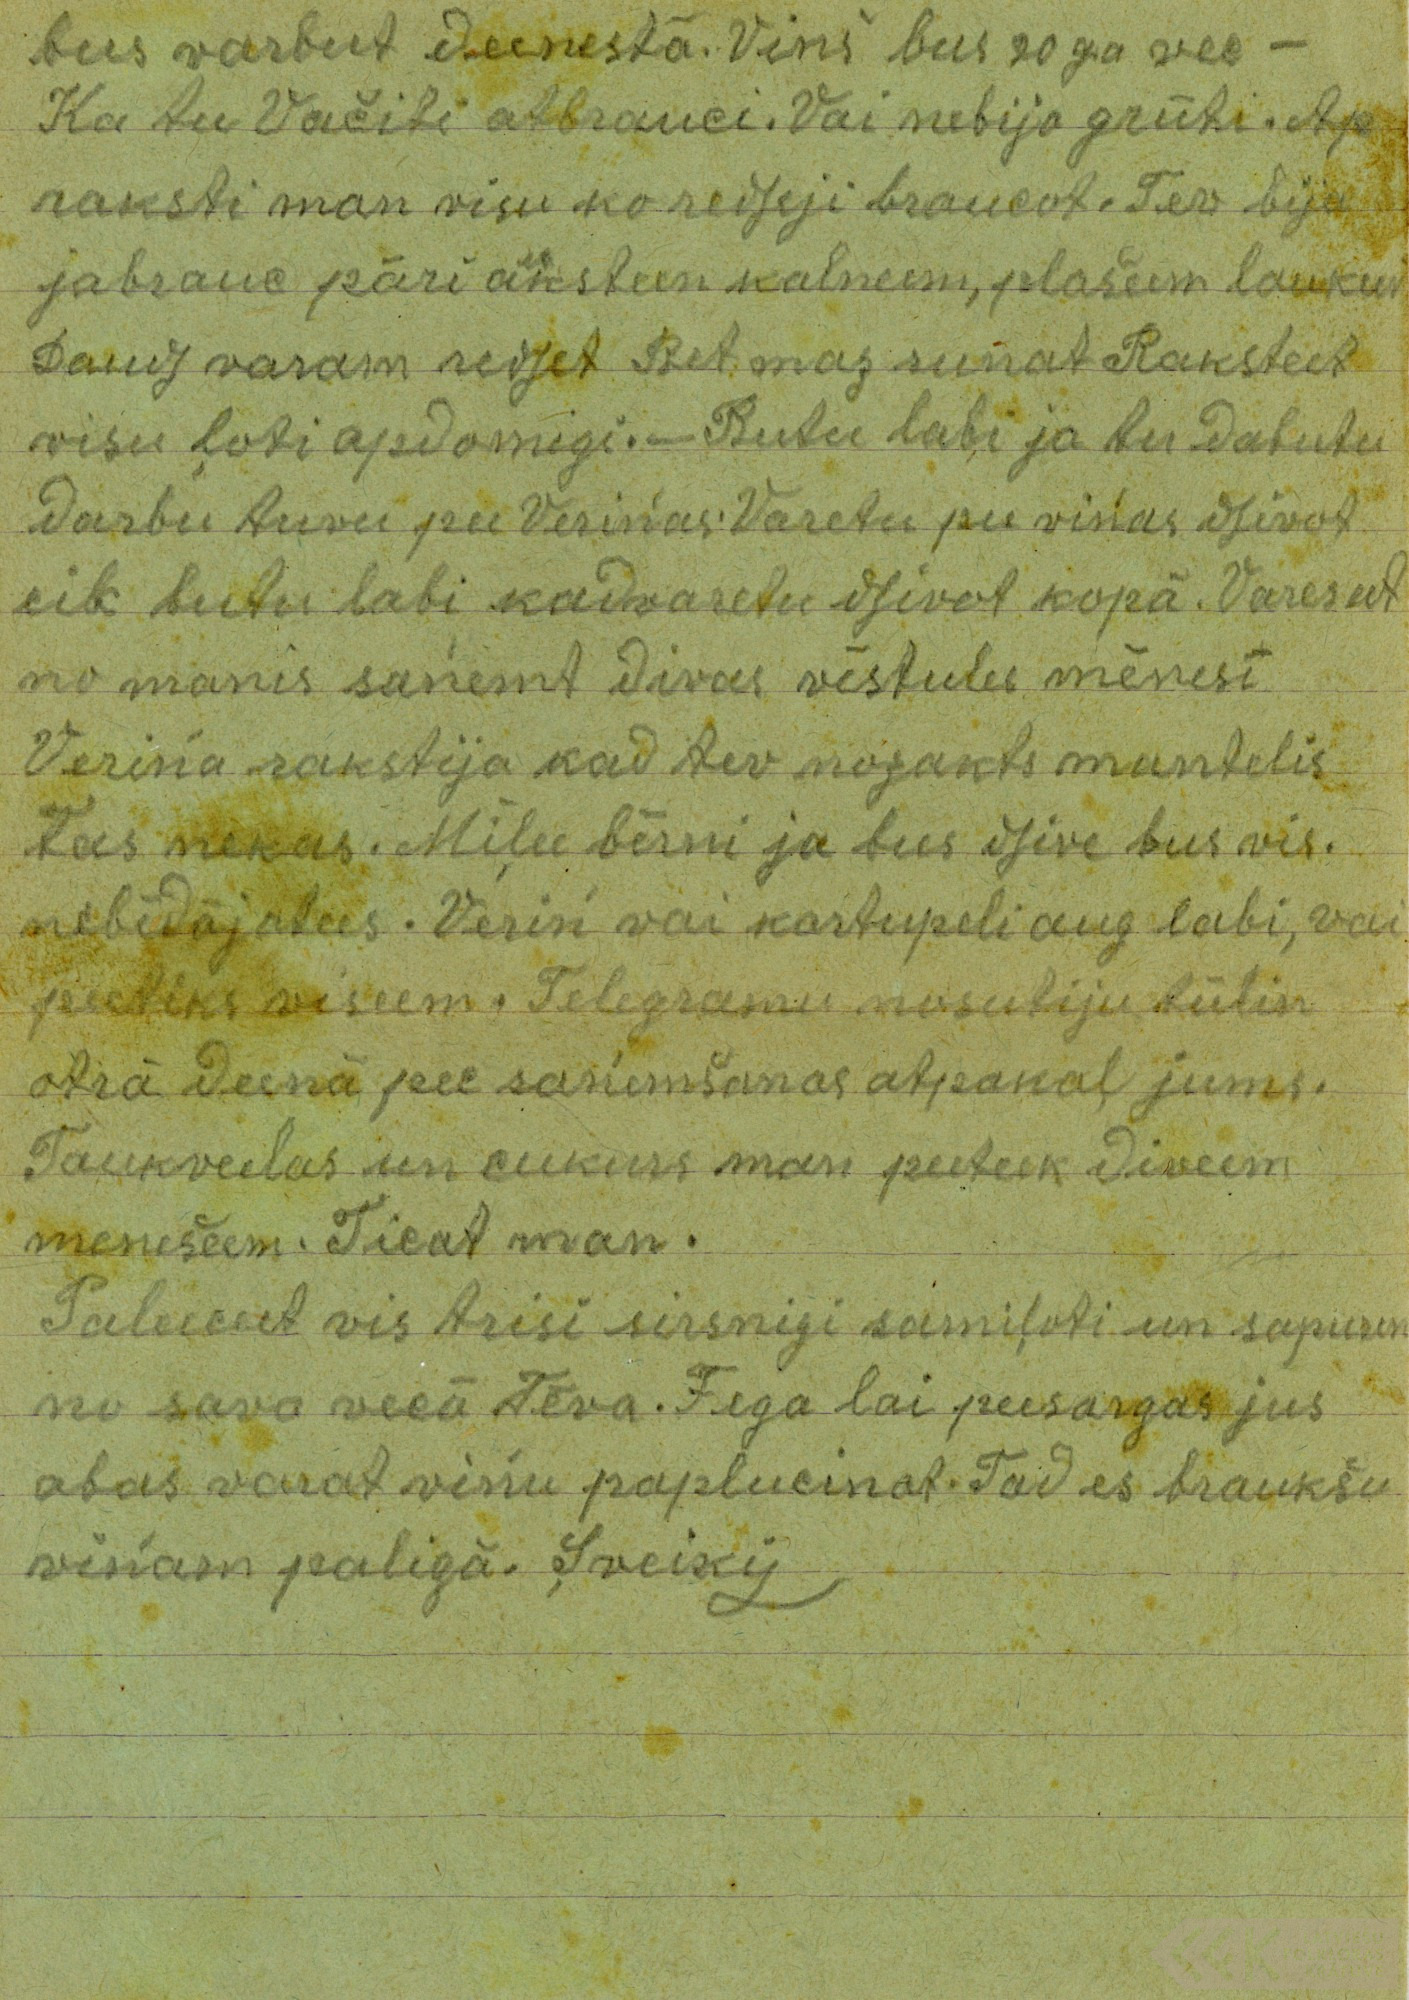 bus varbut deenestā. Vinš bus 20 ga vec –
Ka tu Vačiti atbrauci. Vai nebija grūti. Ap
raksti man visu ko redseji braucot. Tev bija
jabrauc pāri aūksteen kalneem, plašeem laukum
Daudz varam redset Bet maz runat Raksteet
visu ļoti apdomigi. – Butu labi ja tu dabutu
darbu tuvu pee Veriņas. Varetu pee viņas dsivot
cik butu labi kad varetu dsivot kopā. Vareseet
no manis saņemt divas vēstules mēnesī
Veriņa rakstija kad tev nozakts mantelis
Tas nekas. Miļee bērni ja bus dsive bus vis.
nebēdājatees. Veriņ vai kartupeli aug labi, vai
peetiks viseem. Telegramu nosutiju tūlin
otrā deenā pec saņemšanas atpakaļ jums.
Taukveelas un cukurs man peeteek diveem
menešeem. Ticat man.
Paleeceet vis trisi sirsnigi samiļoti un sapurin
no sava vecā Tēva. Fega lai peesargas jus
abas varat viņu paplucinat. Tad es braukšu
viņam paligā. Sveiki